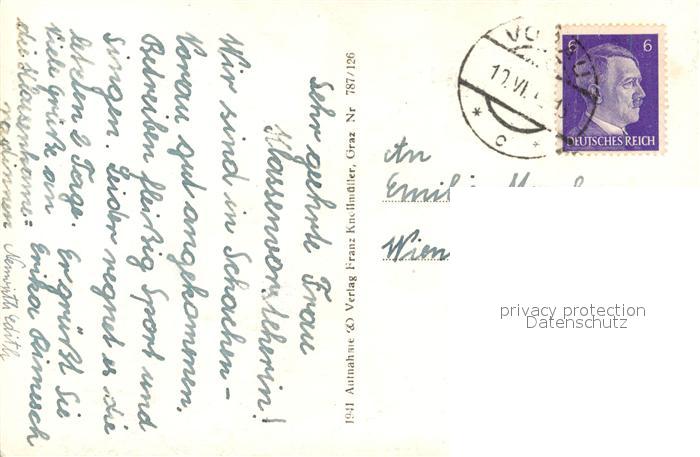 Sehr geehrte Frau
Klassenvorsteherin!
Wir sind in Schachen-
Vorau gut angekommen.
Betreiben fleißig Sport und
singen. Leider regnet es die
letzten 2 Tage. Es grüßt Sie
Viele Grüße an Erika
die Klassenkame-
radinnen Edith
1941 Aufnahme & Verlag Franz Knollmüller, Graz Nr 787/126
VORAU
* c *
6 6
DEUTSCHES REICH
An
Wien
privacy protection
Datenschutz